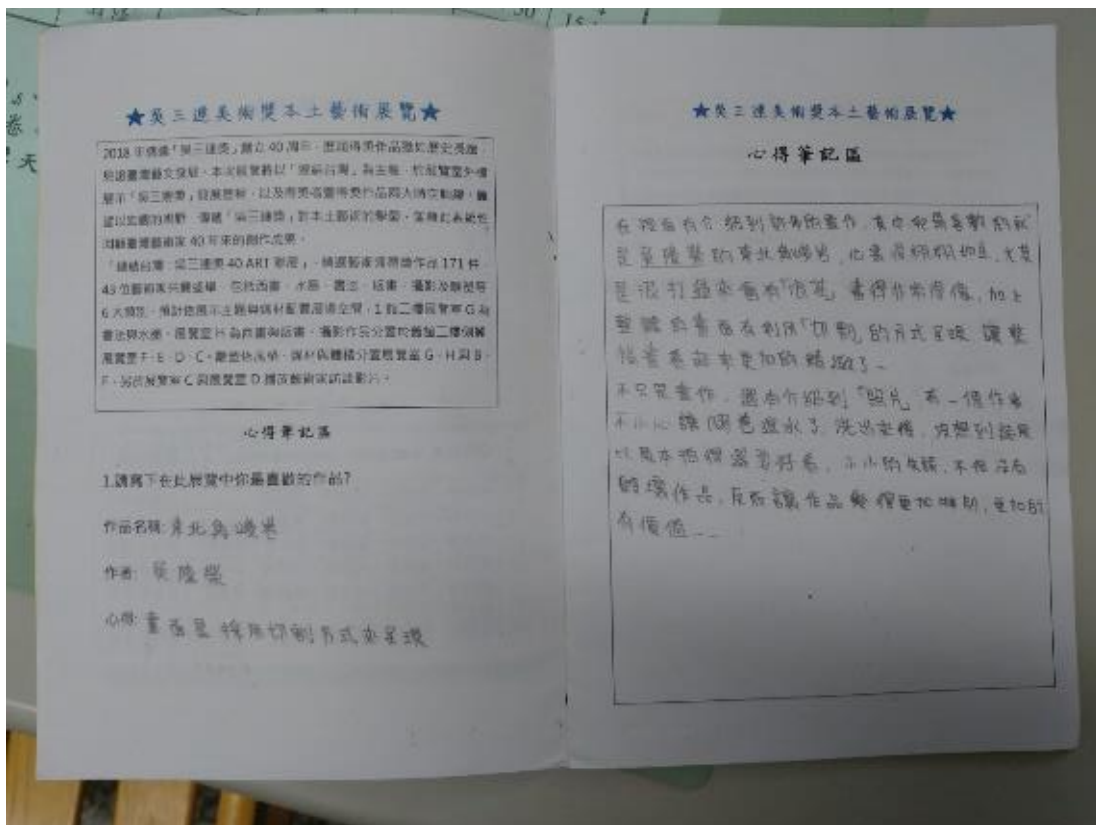 ★吳三連美術獎本土藝術展覽★
2018 年適逢「吳三連獎」創立 40 周年，歷屆得獎作品猶如歷史長廊，
展示「吳三連獎」發展歷程，以及得獎者暨得獎作品兩大時空軸線，
回顧臺灣藝術家 40 年來的創作成果。
「連結台灣：吳三連獎 40 ART 聯展」，精選藝術獎得獎作品 171 件
43 位藝術家共襄盛舉，包括西畫、水墨、書法、版畫、攝影及雕塑等
6 大類別，預計依展示主題與媒材配置展場空間，1 館二樓展覽室 G 為
書法與水墨，展覽室 H 為西畫與版畫，攝影作品分置於舊館二樓側翼
展覽室 F、E、D、C，雕塑依風格、媒材與體積分置展覽室 G、H 與 B、
F，另於展覽室 C 與展覽室 D 播放藝術家訪談影片。
心得筆記區
1.請寫下在此展覽中你最喜歡的作品?
作品名稱: 東北角
作者: 吳隆榮
心得: 畫面是採用切割方式來呈現
★吳三連美術獎本土藝術展覽★
心得筆記區
在裡面有介紹到許多的畫作，其中我最喜歡的就
是吳隆榮的東北角，他畫得栩栩如生，尤其
是浪打過來會有「浪花」畫得非常得像，加上
整體的畫面有利用「切割」的方式呈現，讓整
幅畫看起來更加的精緻了。
不只是畫作，還有介紹到「照片」有一個作者
不小心讓 進水了，洗出來後，沒想到結果
以原本拍得還要好看，小小的失誤，不但沒有
破壞作品，反而讓作品變得更加 ，更加的
有價值…